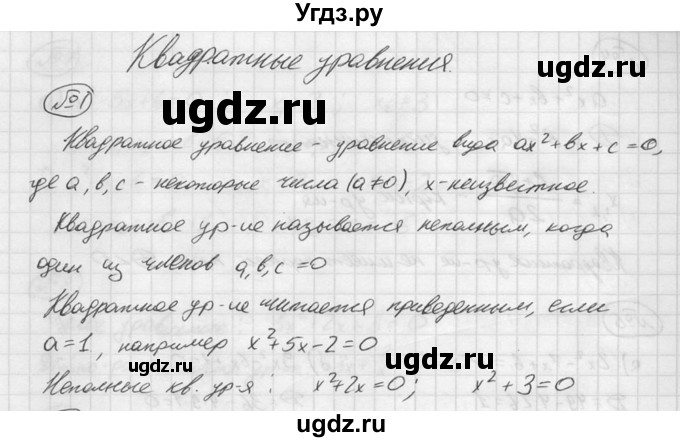 Угдз.ру
Квадратные уравнения.
№1
Квадратное уравнение - уравнение вида ax²+bx+c=0,
где a, b, c - некоторые числа (a≠0), x-неизвестное.
Квадратное ур-ие называется неполным, когда
один из членов a, b, c = 0
Квадратное ур-ие читается приведенным, если
a=1, например x²+5x-2=0
Неполные кв. ур-я: x²+2x=0; x²+3=0
ugdz.ru
ugdz.ru
ugdz.ru
ugdz.ru
ugdz.ru
ugdz.ru
ugdz.ru
ugdz.ru